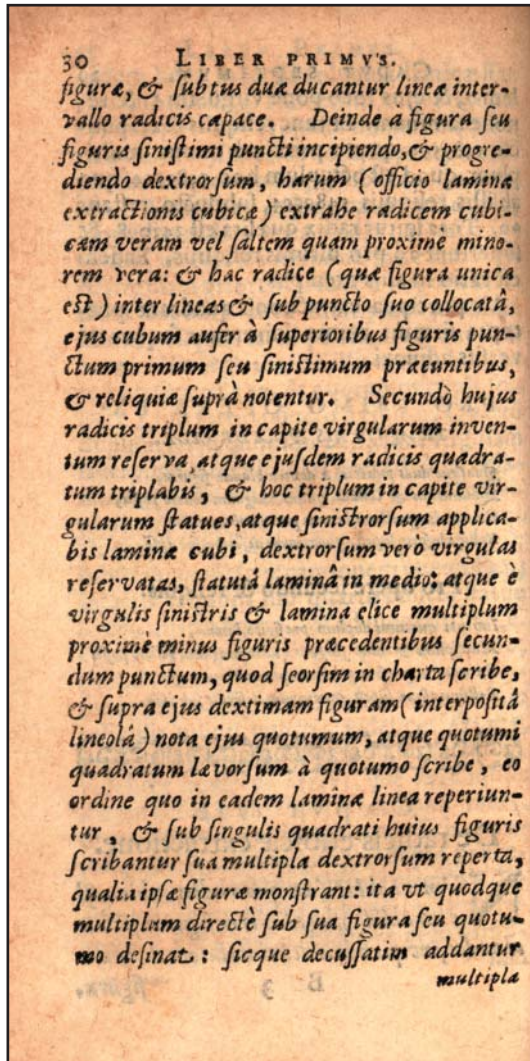 30 LIBER PRIMVS.
figuræ, & subtus duæ ducantur lineæ inter-
vallo radicis capace. Deinde à figura seu
figuris sinistimi puncti incipiendo, & progre-
diendo dextrorsum, harum (officio laminæ
extractionis cubicæ) extrahe radicem cubi-
cam veram vel saltem quam proximè mino-
rem vera: & hac radice (quæ figura unica
est) inter lineas & sub puncto suo collocatâ,
ejus cubum aufer à superioribus figuris pun-
ctum primum seu sinistimum præeuntibus,
& reliquiæ suprà notentur. Secundò hujus
radicis triplum in capite virgularum inven-
tum reserva, atque ejusdem radicis quadra-
tum triplabis, & hoc triplum in capite vir-
gularum statues, atque sinistrorsum applica-
bis laminæ cubi, dextrorsum verò virgulas
reservatas, statutâ laminâ in medio: atque è
virgulis sinistris & lamina elice multiplum
proximè minus figuris præcedentibus secun-
dum punctum, quod seorsim in charta scribe,
& supra ejus dextimam figuram (interpositâ
lineolâ) nota ejus quotumum, atque quotumi
quadratum lævorsum à quotumo scribe, eo
ordine quo in eadem laminæ linea reperiun-
tur, & sub singulis quadrati huius figuris
scribantur sua multipla dextrorsum reperta,
qualia ipsæ figuræ monstrant: ita vt quodque
multiplum directè sub sua figura seu quotu-
mo desinat: sicque decussatim addantur
multipla